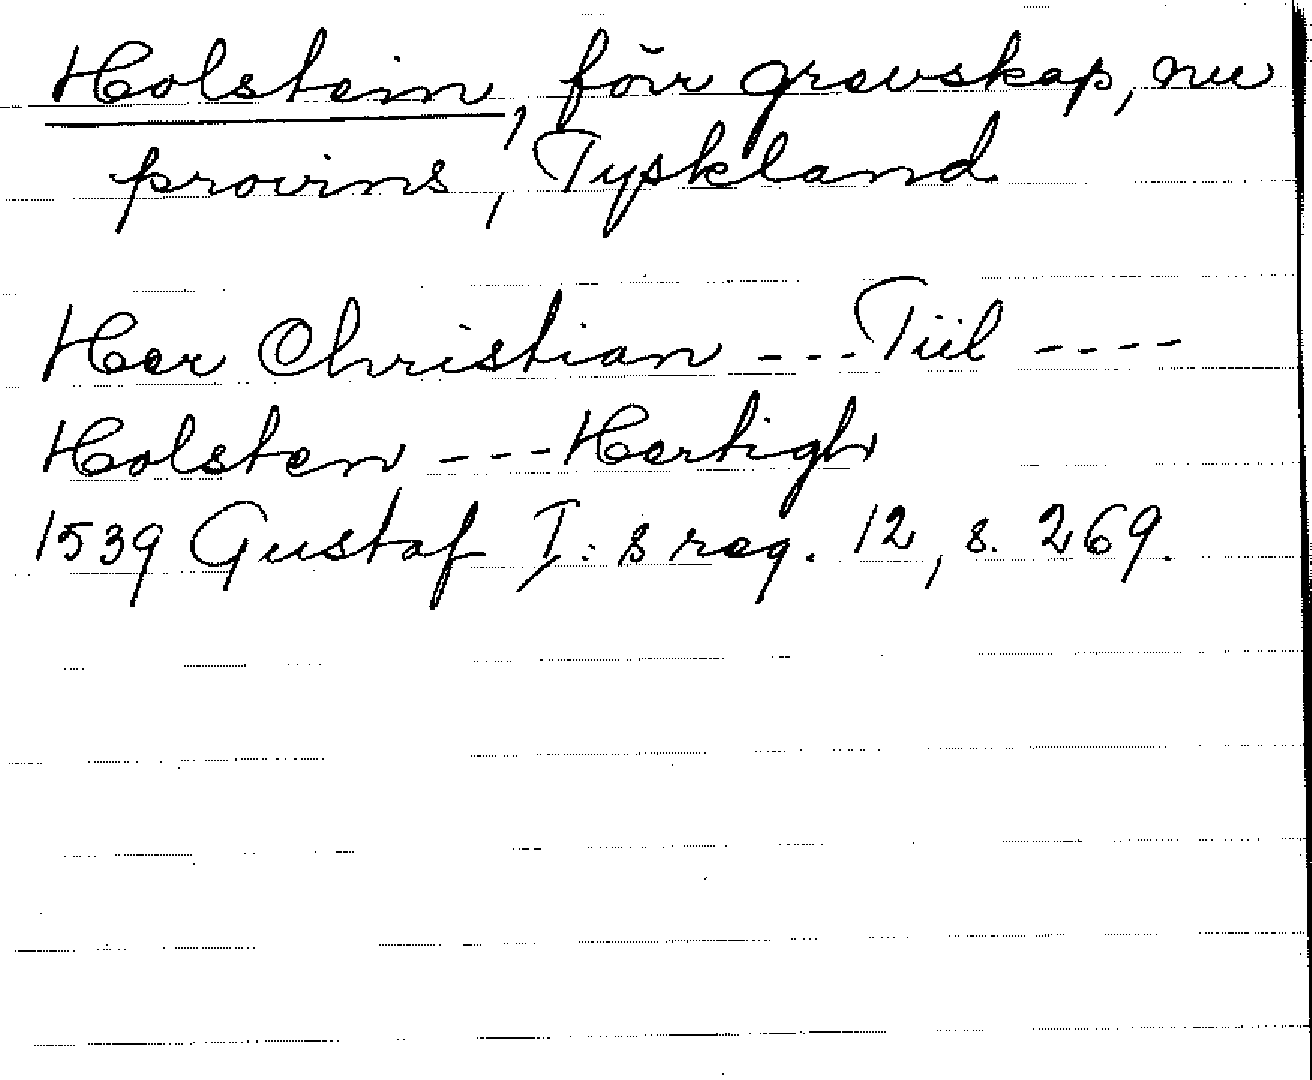 Holstein, förr grevskap, nu
provins, Tyskland
Her Christian --- Tiil ----
Holsten --- Hertigh
1539 Gustaf I:s reg. 12, s. 269.